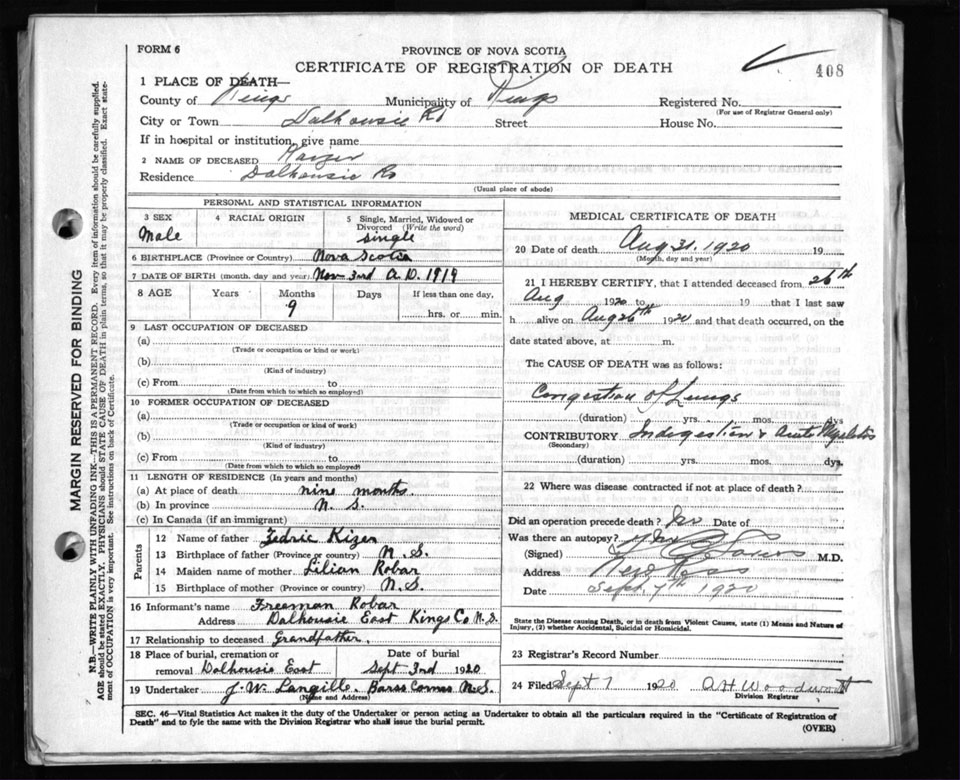 FORM 6
PROVINCE OF NOVA SCOTIA
CERTIFICATE OF REGISTRATION OF DEATH
408
1 PLACE OF DEATH—
County of Kings Municipality of Kings Registered No.
(For use of Registrar General only)
City or Town Dalhousie Rd Street House No.
If in hospital or institution, give name
2 NAME OF DECEASED Kaizer
Residence Dalhousie Rd
(Usual place of abode)
PERSONAL AND STATISTICAL INFORMATION
3 SEX 4 RACIAL ORIGIN 5 Single, Married, Widowed or Divorced (Write the word)
Male single
6 BIRTHPLACE (Province or Country) Nova Scotia
7 DATE OF BIRTH (month, day and year) Nov 3rd A.D. 1919
8 AGE Years Months Days If less than one day,
9 hrs. or min.
9 LAST OCCUPATION OF DECEASED
(a)
(Trade or occupation or kind or work)
(b)
(Kind of industry)
(c) From to
(Date from which to which so employed)
10 FORMER OCCUPATION OF DECEASED
(a)
(Trade or occupation or kind of work)
(b)
(Kind of industry)
(c) From to
(Date from which to which so employed)
11 LENGTH OF RESIDENCE (In years and months)
(a) At place of death nine months.
(b) In province N. S.
(c) In Canada (if an immigrant)
Parents
12 Name of father Zedric Kizer
13 Birthplace of father (Province or country) N. S.
14 Maiden name of mother Lilian Robar
15 Birthplace of mother (Province or country) N. S.
16 Informant's name Freeman Robar
Address Dalhousie East Kings Co N.S.
17 Relationship to deceased Grandfather.
18 Place of burial, cremation or removal Dalhousie East Date of burial Sept 3nd 1920
19 Undertaker J. W. Langille. Barss Corner N.S.
(Name and Address)
MEDICAL CERTIFICATE OF DEATH
20 Date of death Aug 31. 1920 19
(Month, day and year)
21 I HEREBY CERTIFY, that I attended deceased from 26th
Aug 1920 to 19 that I last saw
h alive on Aug 26th 1920 and that death occurred, on the
date stated above, at m.
The CAUSE OF DEATH was as follows:
Congestion of Lungs
(duration) yrs. mos. dys
CONTRIBUTORY Indigestion & Acute
(Secondary)
(duration) yrs. mos. dys.
22 Where was disease contracted if not at place of death?
Did an operation precede death? No Date of
Was there an autopsy? No
(Signed) M.D.
Address New Ross
Date Sept. 7th 1920
State the Disease causing Death, or in death from Violent Causes, state (1) Means and Nature of
Injury, (2) whether Accidental, Suicidal or Homicidal.
23 Registrar's Record Number
24 Filed Sept 7 1920 O H Woodworth
Division Registrar
SEC. 46—Vital Statistics Act makes it the duty of the Undertaker or person acting as Undertaker to obtain all the particulars required in the "Certificate of Registration of
Death" and to fyle the same with the Division Registrar who shall issue the burial permit.
(OVER)
MARGIN RESERVED FOR BINDING
N.B.—WRITE PLAINLY WITH UNFADING INK—THIS IS A PERMANENT RECORD. Every item of information should be carefully supplied.
AGE should be stated EXACTLY. PHYSICIANS should STATE CAUSE OF DEATH in plain terms, so that it may be properly classified. Exact statement
of OCCUPATION is very important. See instructions on back of Certificate.